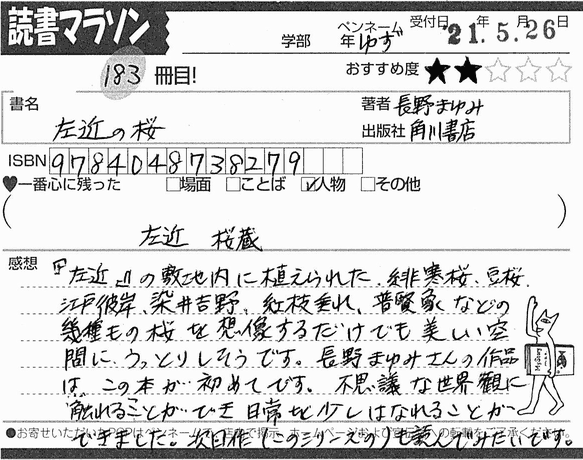 読書マラソン
学部 年 ペンネーム ゆず 受付日 '21年 5月 26日
183 冊目!
おすすめ度 ★★☆☆☆
書名 左近の桜
著者 長野まゆみ
出版社 角川書店
ISBN 9784048738279
♥一番心に残った □場面 □ことば ☑人物 □その他
( 左近 桜蔵 )
感想 『左近』の敷地内に植えられた、緋寒桜、豆桜、
江戸彼岸、染井吉野、紅枝垂れ、普賢象などの
幾種もの桜を想像するだけでも美しい空
間に、うっとりしそうです。長野まゆみさんの作品
は、この本が初めてです。不思議な世界観に
触れることができ日常を少しはなれることが
できました。次回作(このシリーズの)も読んでみたいです。
●お寄せいただいたPOPはペンネームで、店内で掲示、ホームページおよび宣伝への転載をご了承ください。